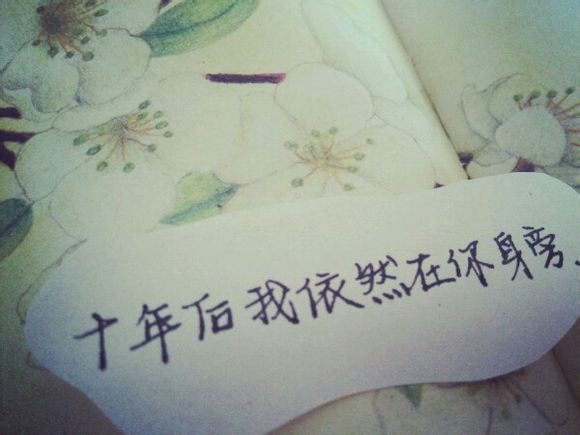 十年后我依然在你身旁.